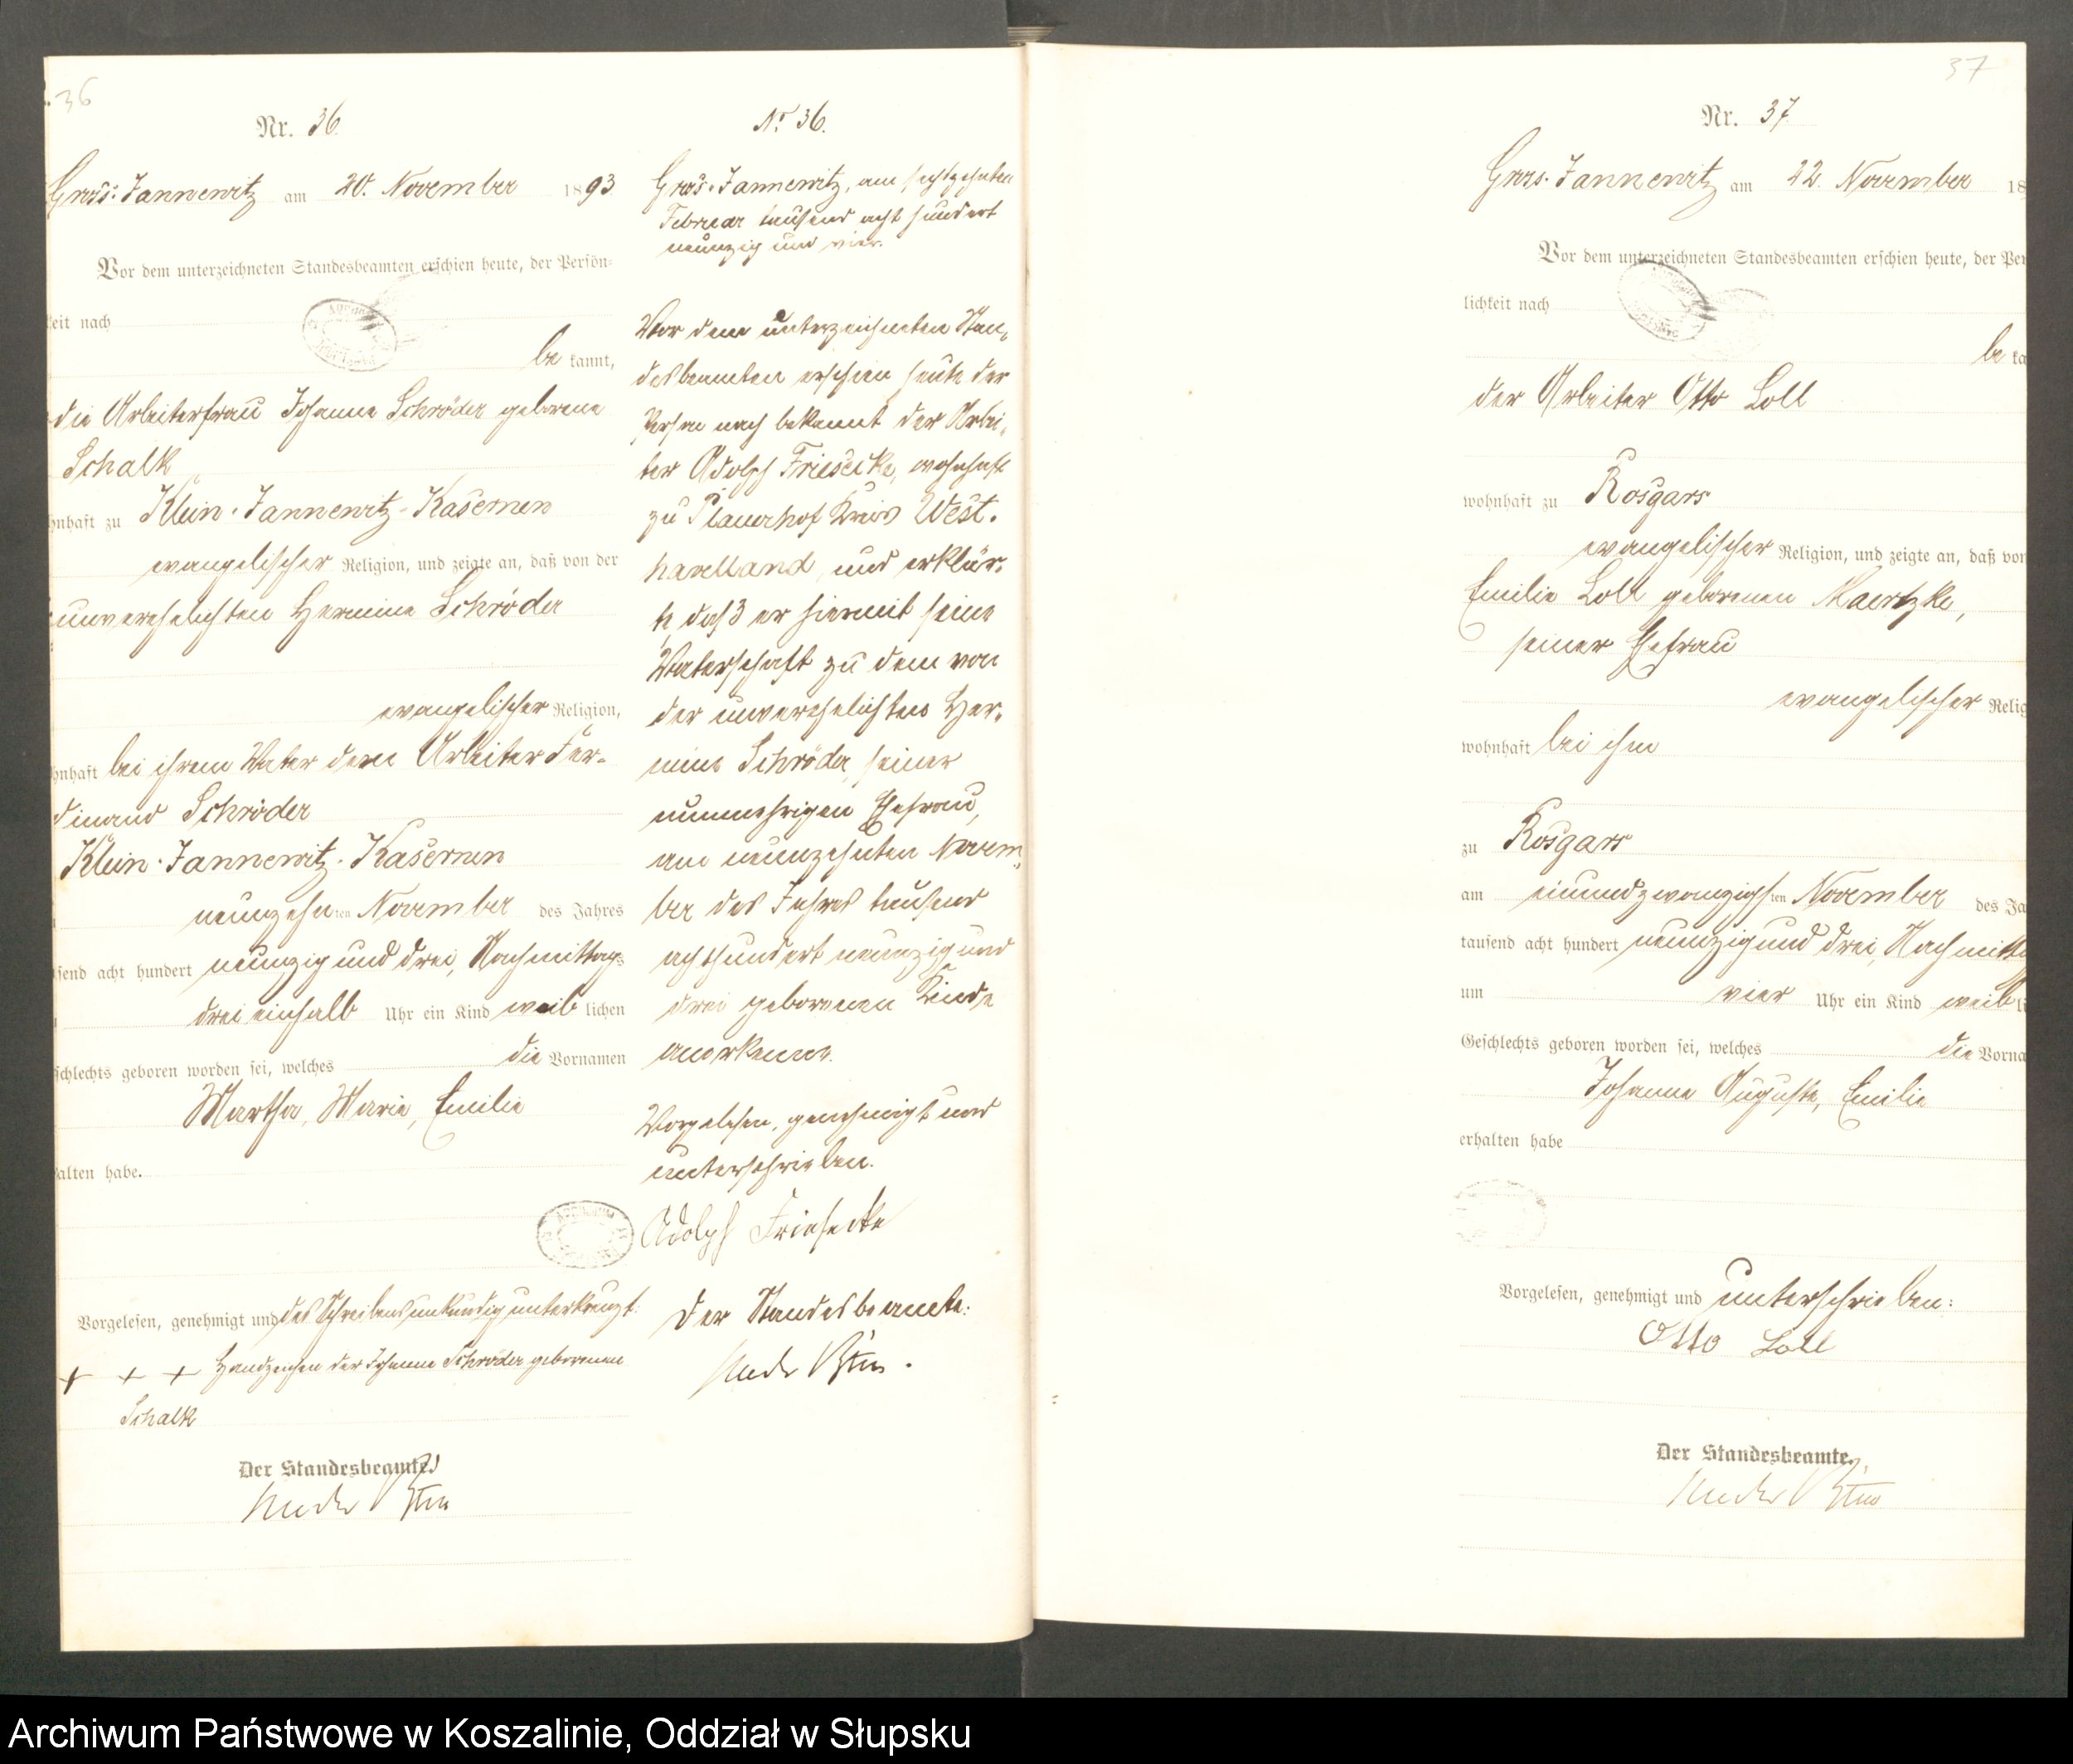 36
Nr. 36.
Gross-Jannewitz am 20. November 1893
Vor dem unterzeichneten Standesbeamten erschien heute, der Persön-
keit nach
be kannt,
die Arbeiterfrau Johanne Schröder geborene
Schalk
hnhaft zu Klein-Jannewitz-Kasernen
evangelischer Religion, und zeigte an, daß von der
unverehelichten Hermine Schröder
evangelischer Religion,
hnhaft bei ihrem Vater dem Arbeiter Fer-
dinand Schröder
Klein-Jannewitz-Kasernen
neunzehnten November des Jahres
send acht hundert neunzig und drei, Nachmittags
drei einhalb Uhr ein Kind weiblichen
schlechts geboren worden sei, welches die Vornamen
Martha, Marie, Emilie
alten habe.
Vorgelesen, genehmigt und des Schreibens unkundig unterkreuzt:
+ + + Handzeichen der Johanne Schröder geborenen
Schalk
Der Standesbeamte.
No 36.
Gross-Jannewitz, am sechszehnten
Februar tausend acht hundert
neunzig und vier.
Vor dem unterzeichneten Stan-
desbeamten erschien heute der
Person nach bekannt der Arbei-
ter Adolph Friesecke, wohnhaft
zu Plauerhof Kreis West-
havelland, und erklär-
te, daß er hiermit seine
Vaterschaft zu dem von
der unverehelichten Her-
mine Schröder, seiner
nunmehrigen Ehefrau,
am neunzehnten Novem-
ber des Jahres tausend
achthundert neunzig und
drei geborenen Kinde
anerkenne.
Vorgelesen, genehmigt und
unterschrieben.
Adolph Friesecke
Der Standesbeamte:
37
Nr. 37
Gross-Jannewitz am 22. November 18
Vor dem unterzeichneten Standesbeamten erschien heute, der Per
lichkeit nach
be ka
der Arbeiter Otto Loll
wohnhaft zu Rosgars
evangelischer Religion, und zeigte an, daß von
Emilie Loll geborenen Maertzke,
seiner Ehefrau
evangelischer Relig
wohnhaft bei ihm
zu Rosgars
am einundzwanzigsten November des Ja
tausend acht hundert neunzig und drei, Nachmitta
um vier Uhr ein Kind weibli
Geschlechts geboren worden sei, welches die Vorna
Johanne Auguste, Emilie
erhalten habe
Vorgelesen, genehmigt und unterschrieben:
Otto Loll
Der Standesbeamte.
Archiwum Państwowe w Koszalinie, Oddział w Słupsku